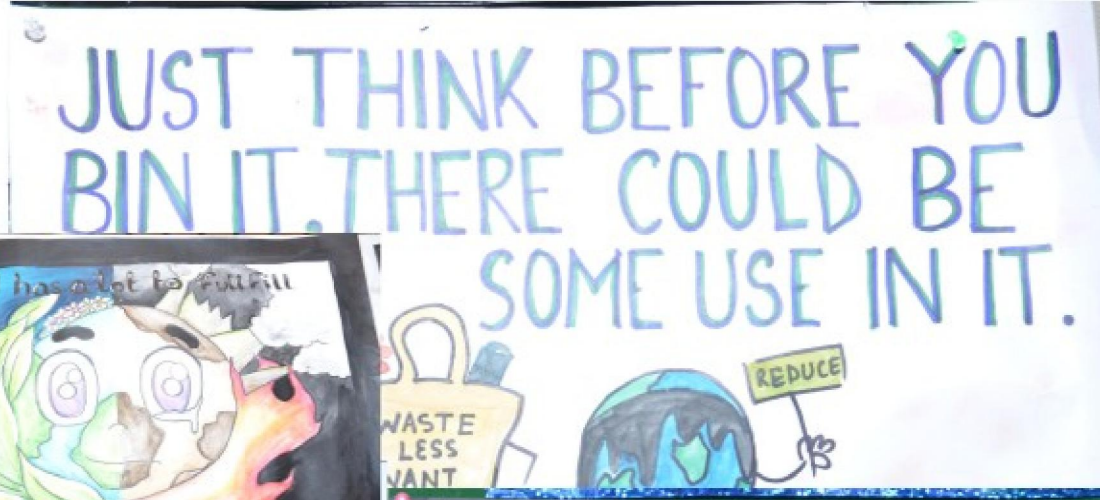 JUST THINK BEFORE YOU
BIN IT. THERE COULD BE
SOME USE IN IT.
has a lot to fullfill
REDUCE
WASTE
LESS
WANT